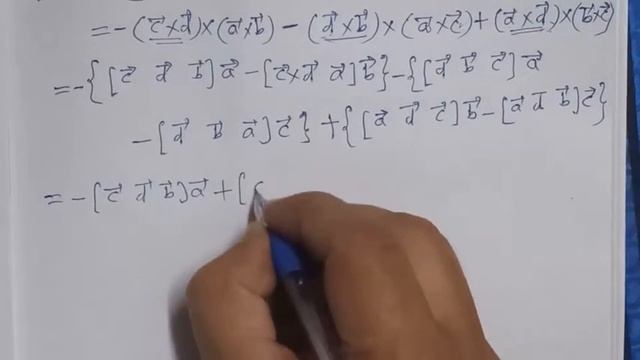 = -(c⃗×d⃗)×(a⃗×b⃗) - (d⃗×b⃗)×(a⃗×c⃗)+(a⃗×d⃗)×(b⃗×c⃗)
= -{[c⃗ d⃗ b⃗]a⃗ - [c⃗×d⃗ a⃗]b⃗} - {[d⃗ b⃗ c⃗]a⃗
- [d⃗ b⃗ a⃗]c⃗} + {[a⃗ d⃗ c⃗]b⃗ - [a⃗ d⃗ b⃗]c⃗}
= -[c⃗ d⃗ b⃗]a⃗ + [c